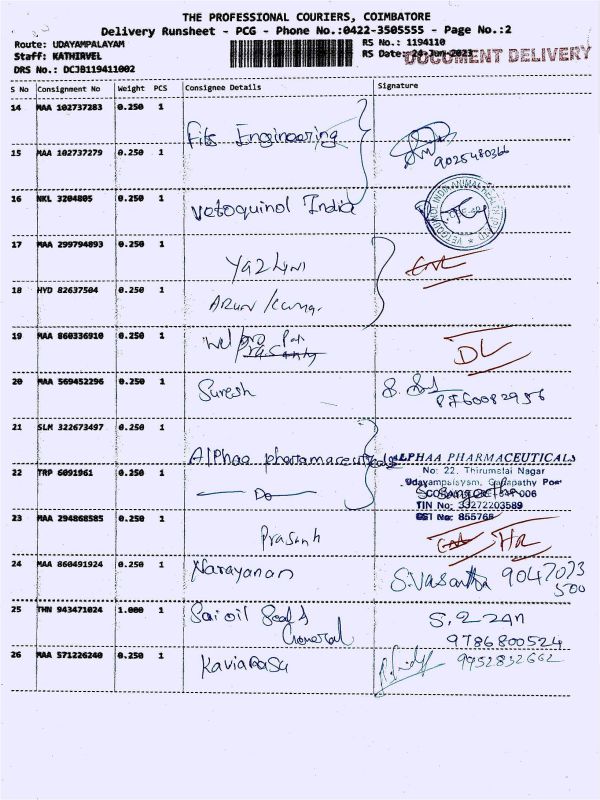 THE PROFESSIONAL COURIERS, COIMBATORE
Delivery Runsheet - PCG - Phone No.:0422-3505555 - Page No.:2
Route: UDAYAMPALAYAM
RS No.: 1194110
Staff: KATHIRVEL
RS Date: 24-Jun-2023
DOCUMENT DELIVERY
DRS No.: DCJB119411002
S No Consignment No Weight PCS Consignee Details Signature
14 MAA 102737283 0.250 1
Fits Engineering
15 MAA 102737279 0.250 1
9025480366
16 NKL 3204805 0.250 1
Vetoquinol India
17 MAA 299794893 0.250 1
Yazhini
18 HYD 82637504 0.250 1
Arun Kumar
19 MAA 860336910 0.250 1
DL
20 MAA 569452296 0.250 1
Suresh
21 SLM 322673497 0.250 1
Alphaa pharmaceuticals
ALPHAA PHARMACEUTICALS
No: 22, Thirumalai Nagar
22 TRP 6091961 0.250 1
Do
Udayampalayam, Ganapathy Post
TIN No: 33272203589
CST No: 855768
23 MAA 294868585 0.250 1
Prasanh
24 MAA 860491924 0.250 1
Narayanan
S.Vasantha 9047073
500
25 THN 943471024 1.000 1
Sai oil Seals
General
9786800524
26 MAA 571226240 0.250 1
Kaviarasu
9952832662